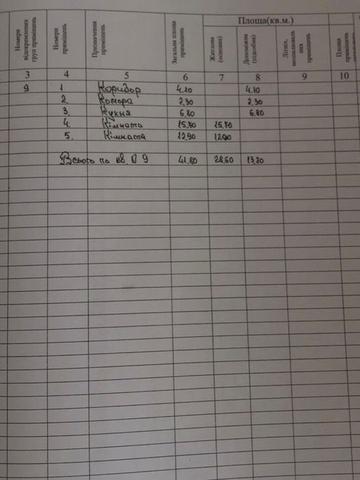 Площа(кв.м.)
Номери відокремлених груп приміщень
Номери приміщень
Призначення приміщень
Загальна площа приміщень
Житлова (основна)
Допоміжна (підсобна)
Площа
3 4 5 6 7 8 9 10
9 1 Коридор 4.10 4.10
2. Комора 2,30 2,30
3. Кухня 6.80 6.80
4. Кімната 15,70 15,70
5. Кімната 12,90 12,90
Всього по кв. № 9 41,80 28,60 13,20